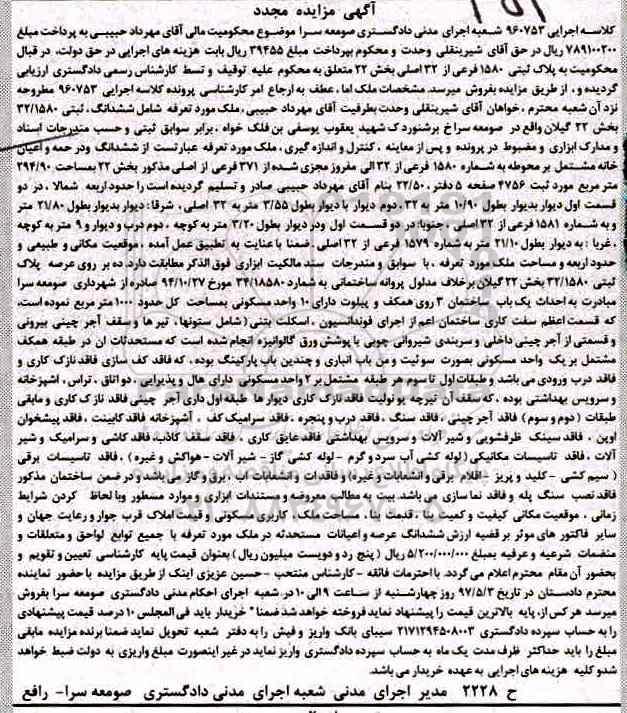 آگهی مزایده مجدد
کلاسه اجرایی ۹۶۰۷۵۳ شعبه اجرای مدنی دادگستری صومعه سرا موضوع محکومیت مالی آقای مهرداد حبیبی به پرداخت مبلغ
۷۸۹۱۰۰۲۰۰ ریال در حق آقای شیرینقلی وحدت و محکوم بپرداخت مبلغ ۳۹۴۵۵ ریال بابت هزینه های اجرایی در حق دولت، در قبال
محکومیت به پلاک ثبتی ۱۵۸۰ فرعی از ۳۲ اصلی بخش ۲۲ متعلق به محکوم علیه توقیف و تسط کارشناس رسمی دادگستری ارزیابی
گردیده و، از طریق مزایده بفروش میرسد. مشخصات ملک اما، عطف به ارجاع امر کارشناسی پرونده کلاسه اجرایی ۹۶۰۷۵۳ مطروحه
نزد آن شعبه محترم، خواهان آقای شیرینقلی وحدت بطرفیت آقای مهرداد حبیبی، ملک مورد تعرفه شامل ششدانگ، ثبتی ۳۲/۱۵۸۰
بخش ۲۲ گیلان واقع در صومعه سرا خ برشنورد ک شهید یعقوب یوسفی بن فلک خواه، برابر سوابق ثبتی و حسب مندرجات اسناد
و مدارک ابرازی و مضبوط در پرونده و پس از معاینه، کنترل و اندازه گیری، ملک مورد تعرفه عبارتست از ششدانگ ودر حمه و اعیان
خانه مشتمل بر محوطه به شماره ۱۵۸۰ فرعی از ۳۲ الی مفروز مجزی شده از ۳۷۱ فرعی از اصلی مذکور بخش ۲۲ بمساحت ۲۹۴/۹۰
متر مربع مورد ثبت ۴۷۵۶ صفحه ۵ دفتر، ۲۲/۵۰ بنام آقای مهرداد حبیبی صادر و تسلیم گردیده است را حدود اربعه شمالا، در دو
قسمت اول دیوار بدیوار بطول ۱۰/۹۰ متر به ۳۲، دوم دیوار با دیوار بطول ۳/۵۵ متر به ۳۲ اصلی، شرقا: دیوار بدیوار بطول ۲۱/۸۰ متر
و به شماره ۱۵۸۱ فرعی از ۳۲ اصلی، جنوبا: در دو قسمت اول ودر دیوار بطول ۳/۲۰ متر به کوچه، دوم درب و دیوار و ۹ متر به کوچه
، غربا: به دیوار بطول ۲۱/۱۰ متر به شماره ۱۵۷۹ فرعی از ۳۲ اصلی. ضمنا با عنایت به تطبیق عمل آمده، موقعیت مکانی و طبیعی و
حدود اربعه و مساحت ملک مورد تعرفه، با سوابق و مندرجات سند مالکیت ابرازی فوق الذکر مطابقت دارد. ده بر روی عرصه پلاک
ثبتی ۳۲/۱۵۸۰ بخش ۲۲ گیلان برخلاف مدلول پروانه ساختمانی به شماره ۳۴/۱۸۵۸۰ مورخ ۹۴/۱۰/۲۷ صادره از شهرداری صومعه سرا
مبادرت به احداث یک باب ساختمان ۳ روی همکف و پیلوت دارای ۱۰ واحد مسکونی بمساحت کل حدود ۱۰۰۰ متر مربع نموده است،
که قسمت اعظم سفت کاری ساختمان اعم از اجرای فونداسیون، اسکلت بتنی (شامل ستونها، تیر ها و سقف آجر چینی بیرونی
و قسمتی از آجر چینی داخلی و سربندی شیروانی چوبی با پوشش ورق گالوانیزه انجام شده است که مستحدثات ان در طبقه همکف
مشتمل بر یک واحد مسکونی بصورت سوئیت و من باب انباری و چندین باب پارکینگ بوده، که فاقد کف سازی فاقد نازک کاری و
فاقد درب ورودی می باشد و طبقات اول تا سوم هر طبقه مشتمل بر ۲ واحد مسکونی دارای هال و پذیرایی، دو اتاق، تراس، اشپزخانه
و سرویس بهداشتی بوده، که سقف آن تیرچه یو نولیت فاقد نازک کاری دیوار ها طبقه اول داری آجر چینی فاقد نازک کاری و مابقی
طبقات (دوم و سوم) فاقد آجر چینی، فاقد سنگ، فاقد درب و پنجره، فاقد سرامیک کف، آشپزخانه فاقد کابینت، فاقد پیشخوان
اوپن، فاقد سینک ظرفشویی و شیر آلات و سرویس بهداشتی فاقد عایق کاری، فاقد سقف کاذب، فاقد کاشی و سرامیک و شیر
آلات، فاقد تاسیسات مکانیکی (لوله کشی آب سرد و گرم - لوله کشی گاز - شیر آلات - هواکش و غیره)، فاقد تاسیسات برقی
(سیم کشی - کلید و پریز - اقلام برقی و انشعابات و غیره) و فاقدات و انشعابات اب، برق و گاز می باشد و در ضمن ساختمان مذکور
فاقد نصب سنگ پله و فاقد نما سازی می باشد. بیت به مطالب معروضه و مستندات ابرازی و موارد مسطور وبا لحاظ کردن شرایط
زمانی، موقعیت مکانی کیفیت و کمیت بنا، قدمت بنا، مساحت ملک، کاربری مسکونی و قیمت املاک قرب جوار و رعایت جهان و
سایر فاکتور های موثر بر قضیه ارزش ششدانگ عرصه و اعیانات مستحدثه در ملک مورد تعرفه با جمیع توابع لواحق و متعلقات و
منضمات شرعیه و عرفیه بمبلغ ۵/۲۰۰/۰۰۰/۰۰۰ ریال (پنج رد و دویست میلیون ریال) بعنوان قیمت پایه کارشناسی تعیین و تقویم و
بحضور آن مقام محترم اعلام می گردد. با احترامات فائقه - کارشناس منتخب - حسین عزیزی اینک از طریق مزایده با حضور نماینده
محترم دادستان در تاریخ ۹۷/۵/۳ روز چهارشنبه از ساعت ۹ الی ۱۰ در. شعبه اجرای احکام مدنی دادگستری صومعه سرا بفروش
میرسد هر کس از، پایه بالاترین قیمت را پیشنهاد نماید فروخته خواهد شد ضمنا" خریدار باید فی المجلس ۱۰ درصد قیمت پیشنهادی
را به حساب سپرده دادگستری ۲۱۷۱۲۹۴۵۰۸۰۰۳ سیبای بانک واریز و فیش را به دفتر شعبه تحویل نماید ضمنا برنده مزایده مابقی
مبلغ را باید حداکثر ظرف مدت یک ماه به حساب سپرده دادگستری واریز نماید در غیر اینصورت مبلغ واریزی به دولت ضبط خواهد
شد و کلیه هزینه های اجرایی به عهده خریدار می باشد.
ح ۲۲۲۸ مدیر اجرای مدنی شعبه اجرای مدنی دادگستری صومعه سرا- رافع